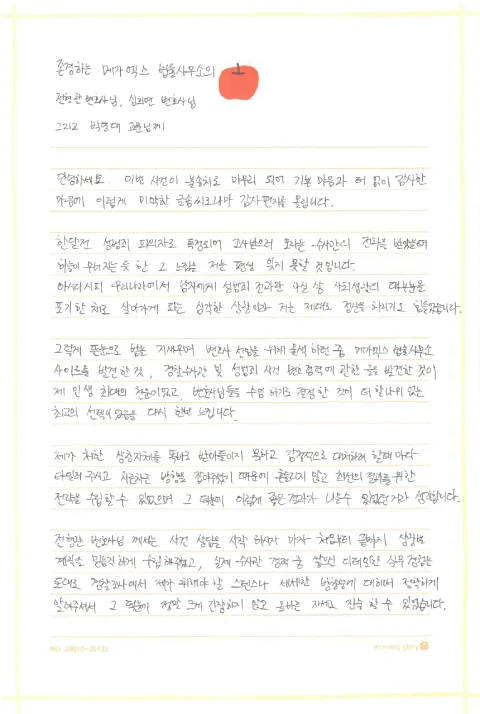 존경하는 메가엑스 법률사무소의
전형환 변호사님, 심희연 변호사님
그리고 박영대 고문님께
안녕하세요. 이번 사건이 불송치로 마무리 되어 기쁜 마음과 더 없이 감사한
마음에 이렇게 미약한 글솜씨로나마 감사편지를 올립니다.
한달전 성범죄 피의자로 특정되어 조사받으러 오라는 수사관의 전화를 받았을때
하늘이 무너지는 듯 한 그 느낌을 저는 평생 잊지 못할 것입니다.
아시다시피 우리나라에서 남자에게 성범죄 전과란 사실 상 사회생활의 대부분을
포기한 채로 살아가게 되는 심각한 상황이라 저는 제대로 정신을 차리기도 힘들었습니다.
그렇게 뜬눈으로 밤을 지새우며 변호사 선임을 위해 물색 하던 중, 메가엑스 법률사무소
사이트를 발견한 것, 경찰수사관 및 성범죄 사건 변호 경력에 관한 글을 발견한 것이
제 인생 최대의 천운이었고, 변호사님들을 수임 하기로 결정한 것이 더할나위 없는
최고의 선택이 었음을 다시 한번 느낍니다.
제가 처한 상황자체를 똑바로 받아들이지 못하고 감정적으로 대처하려 할때 마다
타일러 주시고 차근차근 방향을 잡아주셨기 때문에 흔들리지 않고 최선의 결과를 위한
전략을 수립할 수 있었으며 그 덕분에 이렇게 좋은 결과가 나올수 있었던거라 생각합니다.
전형환 변호사님 께서는 사건 상담을 시작 하자 마자 처음부터 끝까지 상황과
계획을 믿음직 하게 수립 해주셨고, 실제 수사관 경력 중 쌓으신 디테일한 실무 경험을
토대로 경찰조사에서 제가 취해야 할 스탠스나 세세한 방향성에 대해서 전략하게
알려주셔서 그 덕분에 정말 크게 긴장하지 않고 올바른 자세로 진술 할 수 있었습니다.